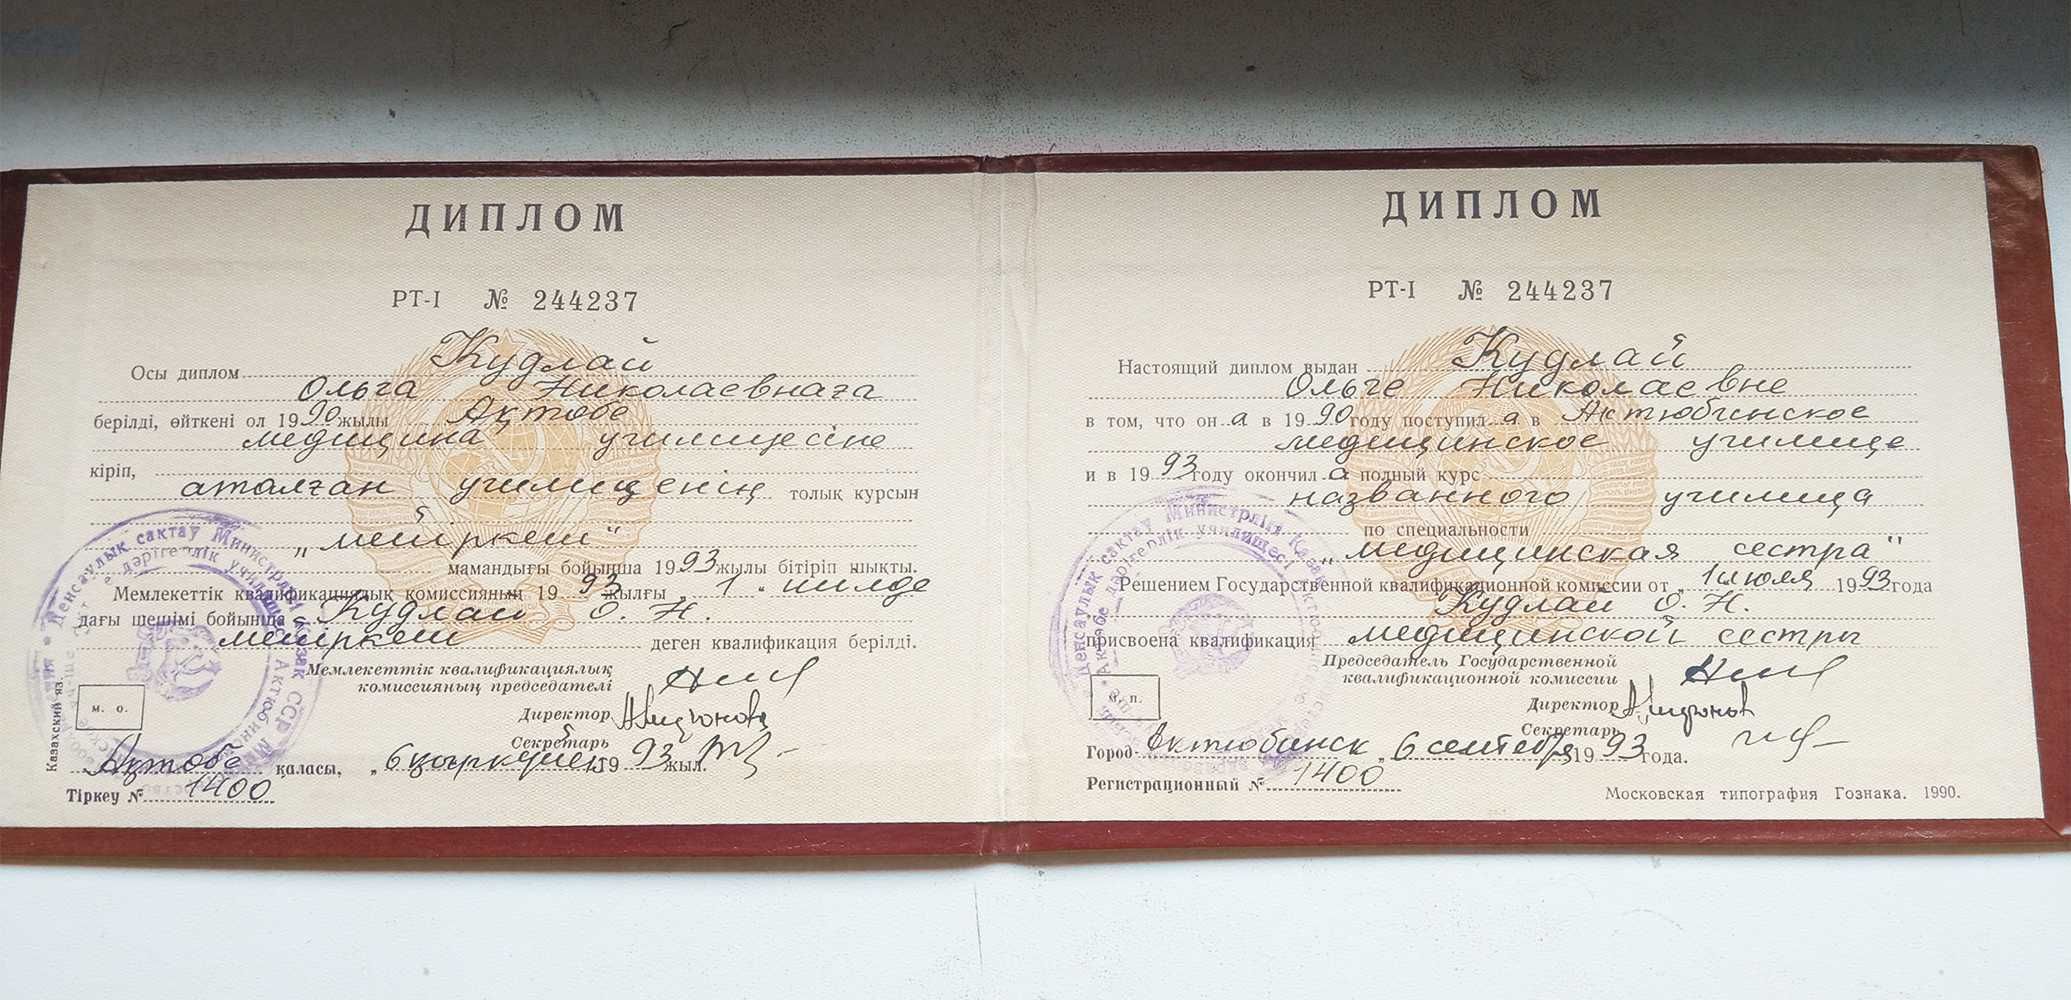 ДИПЛОМ
РТ-I № 244237
Осы диплом Кудлай
Ольга Николаевнаға
берілді, өйткені ол 1990 жылы Ақтөбе
медицина училищесіне
кіріп,
аталған училищенің толық курсын
„мейіркеш"
мамандығы бойынша 1993 жылы бітіріп шықты.
Мемлекеттік квалификациялық комиссияның 1993 жылғы 1. шілде
дағы шешімі бойынша Кудлай О. Н.
мейіркеш деген квалификация берілді.
Мемлекеттік квалификациялық
комиссияның председателі
Директор
Секретарь
м. о.
Казахский яз.
Ақтөбе қаласы, „6 қыркүйек 1993 жыл.
Тіркеу № 1400
ДИПЛОМ
РТ-I № 244237
Настоящий диплом выдан Кудлай
Ольге Николаевне
в том, что он а в 1990 году поступил а в Актюбинское
медицинское училище
и в 1993 году окончил а полный курс
названного училища
по специальности
„медицинская сестра"
Решением Государственной квалификационной комиссии от „1 июля 1993 года
Кудлай О. Н.
присвоена квалификация медицинской сестры
Председатель Государственной
квалификационной комиссии
Директор
Секретарь
м. п.
Город Актюбинск „6 сентября 1993 года.
Регистрационный № 1400
Московская типография Гознака. 1990.